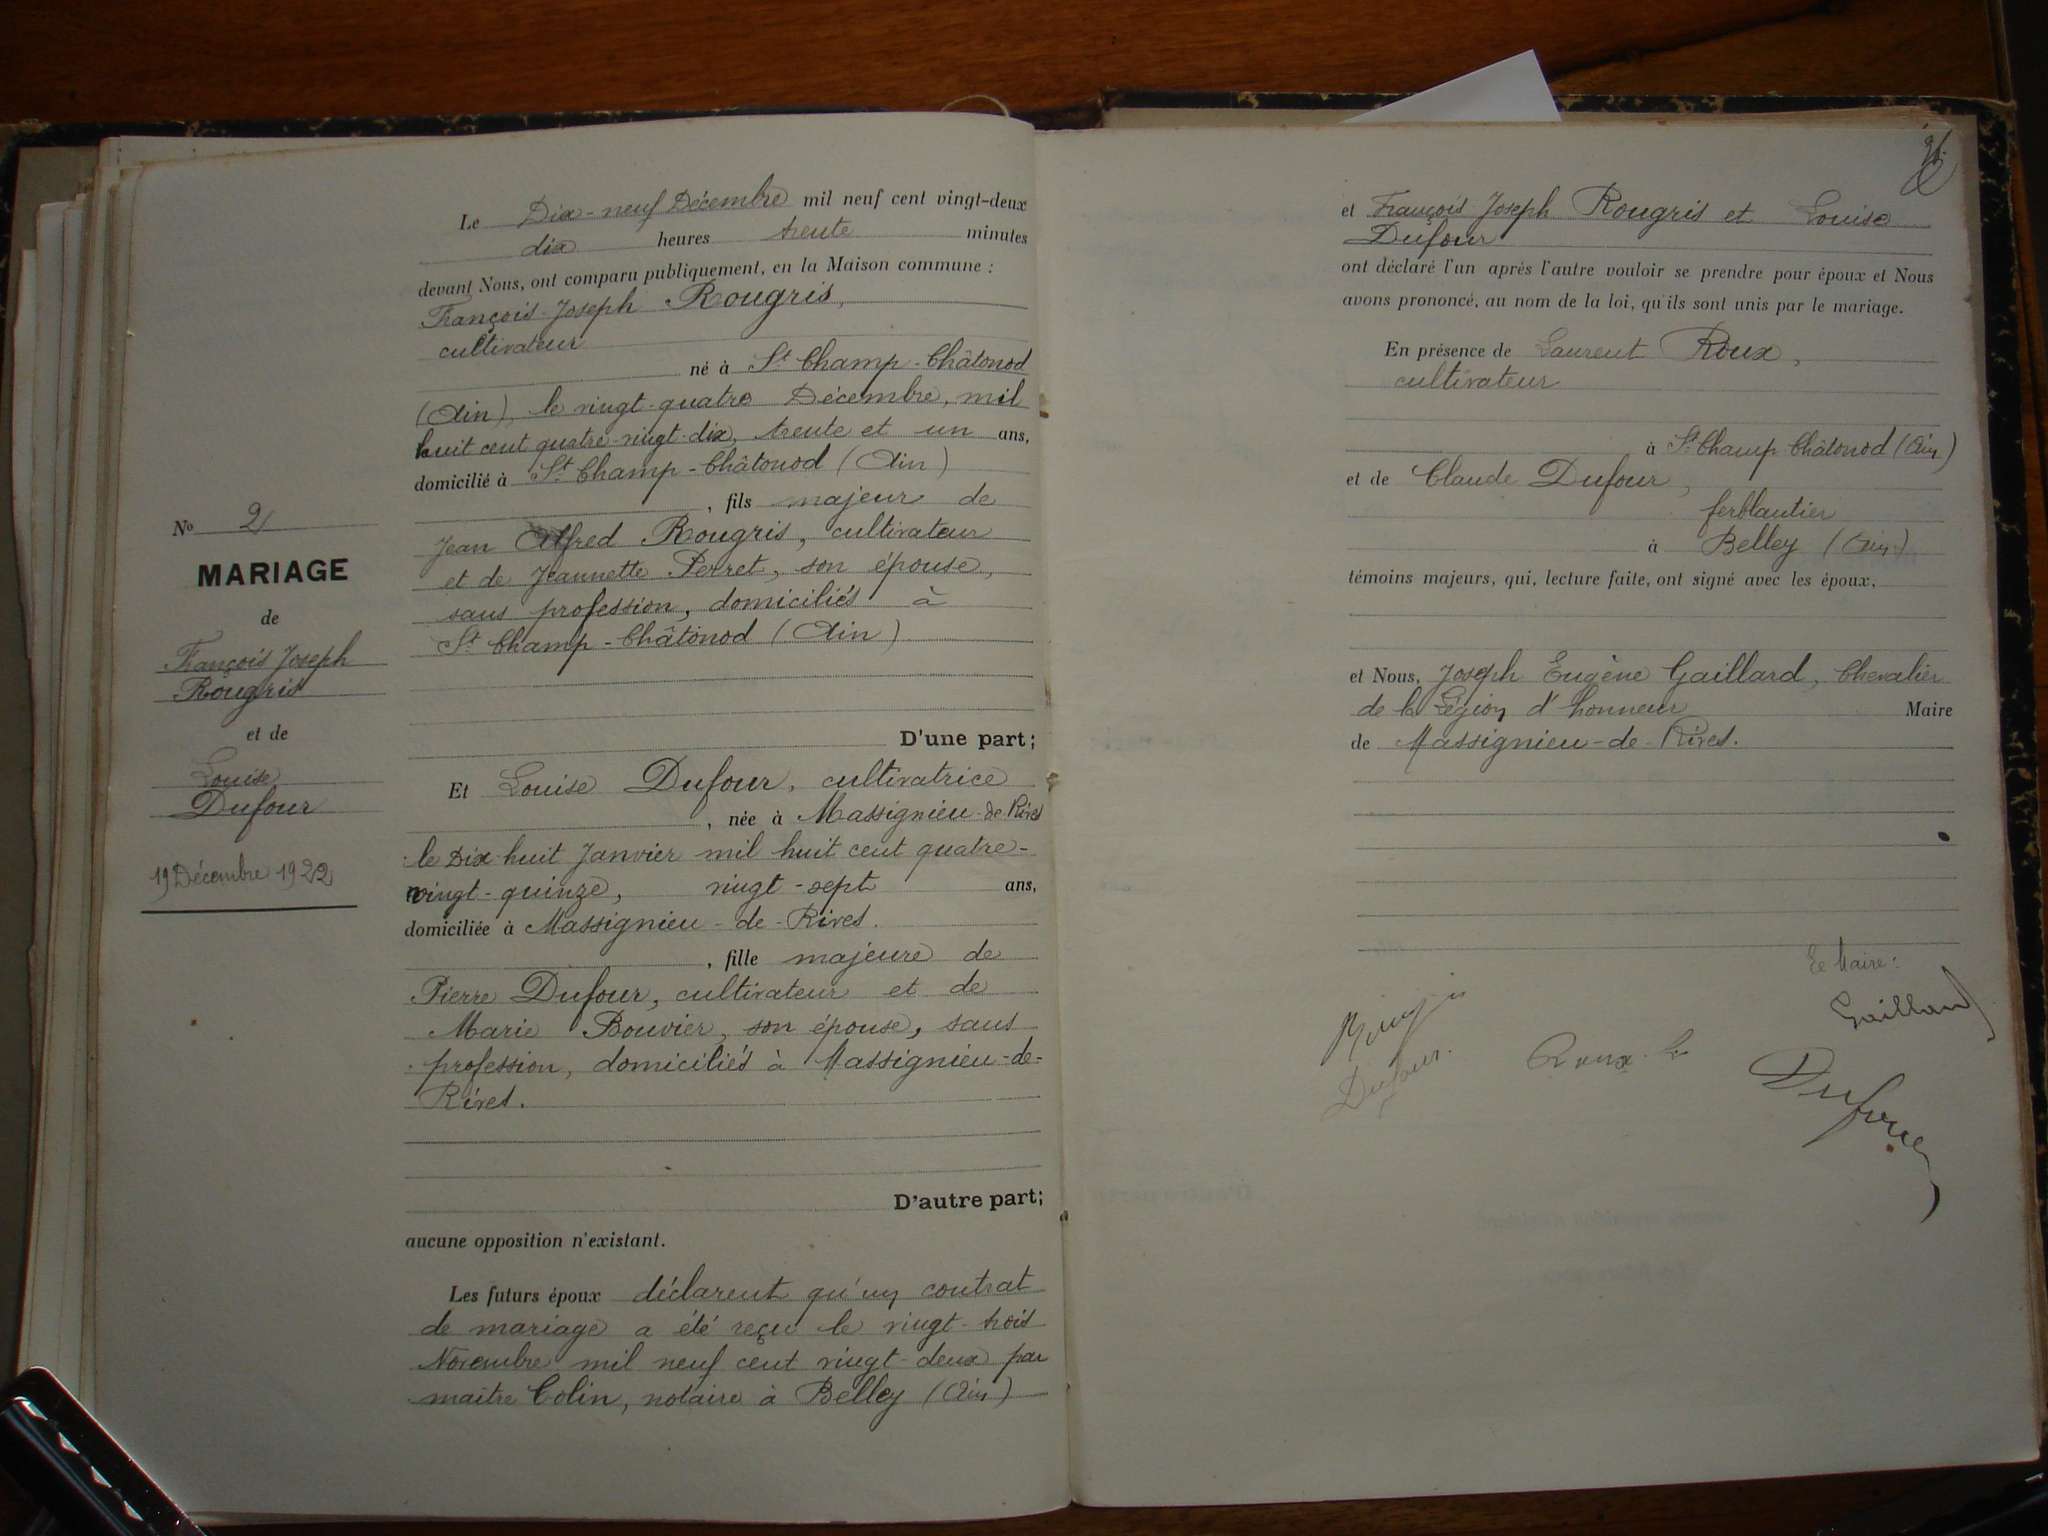 Le Dix-neuf Décembre mil neuf cent vingt-deux
dix heures trente minutes
devant Nous, ont comparu publiquement, en la Maison commune :
François-Joseph Rougris,
cultivateur
né à St Champ-Châtonod
(Ain), le vingt-quatre Décembre, mil
huit cent quatre-vingt-dix, trente et un ans,
domicilié à St Champ-Châtonod (Ain)
, fils majeur de
Jean Alfred Rougris, cultivateur
et de Jeannette Perret, son épouse,
sans profession, domiciliés à
St Champ-Châtonod (Ain)
D'une part;
Et Louise Dufour, cultivatrice
, née à Massignieu-de-Rives
le Dix-huit Janvier mil huit cent quatre-
vingt-quinze, vingt-sept ans,
domiciliée à Massignieu-de-Rives.
, fille majeure de
Pierre Dufour, cultivateur et de
Marie Bouvier, son épouse, sans
profession, domiciliés à Massignieu-de-
Rives.
D'autre part;
aucune opposition n'existant.
Les futurs époux déclarent qu'un contrat
de mariage a été reçu le vingt-trois
Novembre mil neuf cent vingt-deux par
maître Colin, notaire à Belley (Ain)
No 2
MARIAGE
de
François Joseph
Rougris
et de
Louise
Dufour
19 Décembre 1922
et François-Joseph Rougris et Louise
Dufour
ont déclaré l'un après l'autre vouloir se prendre pour époux et Nous
avons prononcé, au nom de la loi, qu'ils sont unis par le mariage.
En présence de Laurent Roux,
cultivateur
à St Champ-Châtonod (Ain)
et de Claude Dufour,
ferblantier
à Belley (Ain)
témoins majeurs, qui, lecture faite, ont signé avec les époux,
et Nous, Joseph Eugène Gaillard, Chevalier
de la Légion d'honneur Maire
de Massignieu-de-Rives.
Le Maire :
Gaillard
Rougris
Dufour.
Roux
Dufour